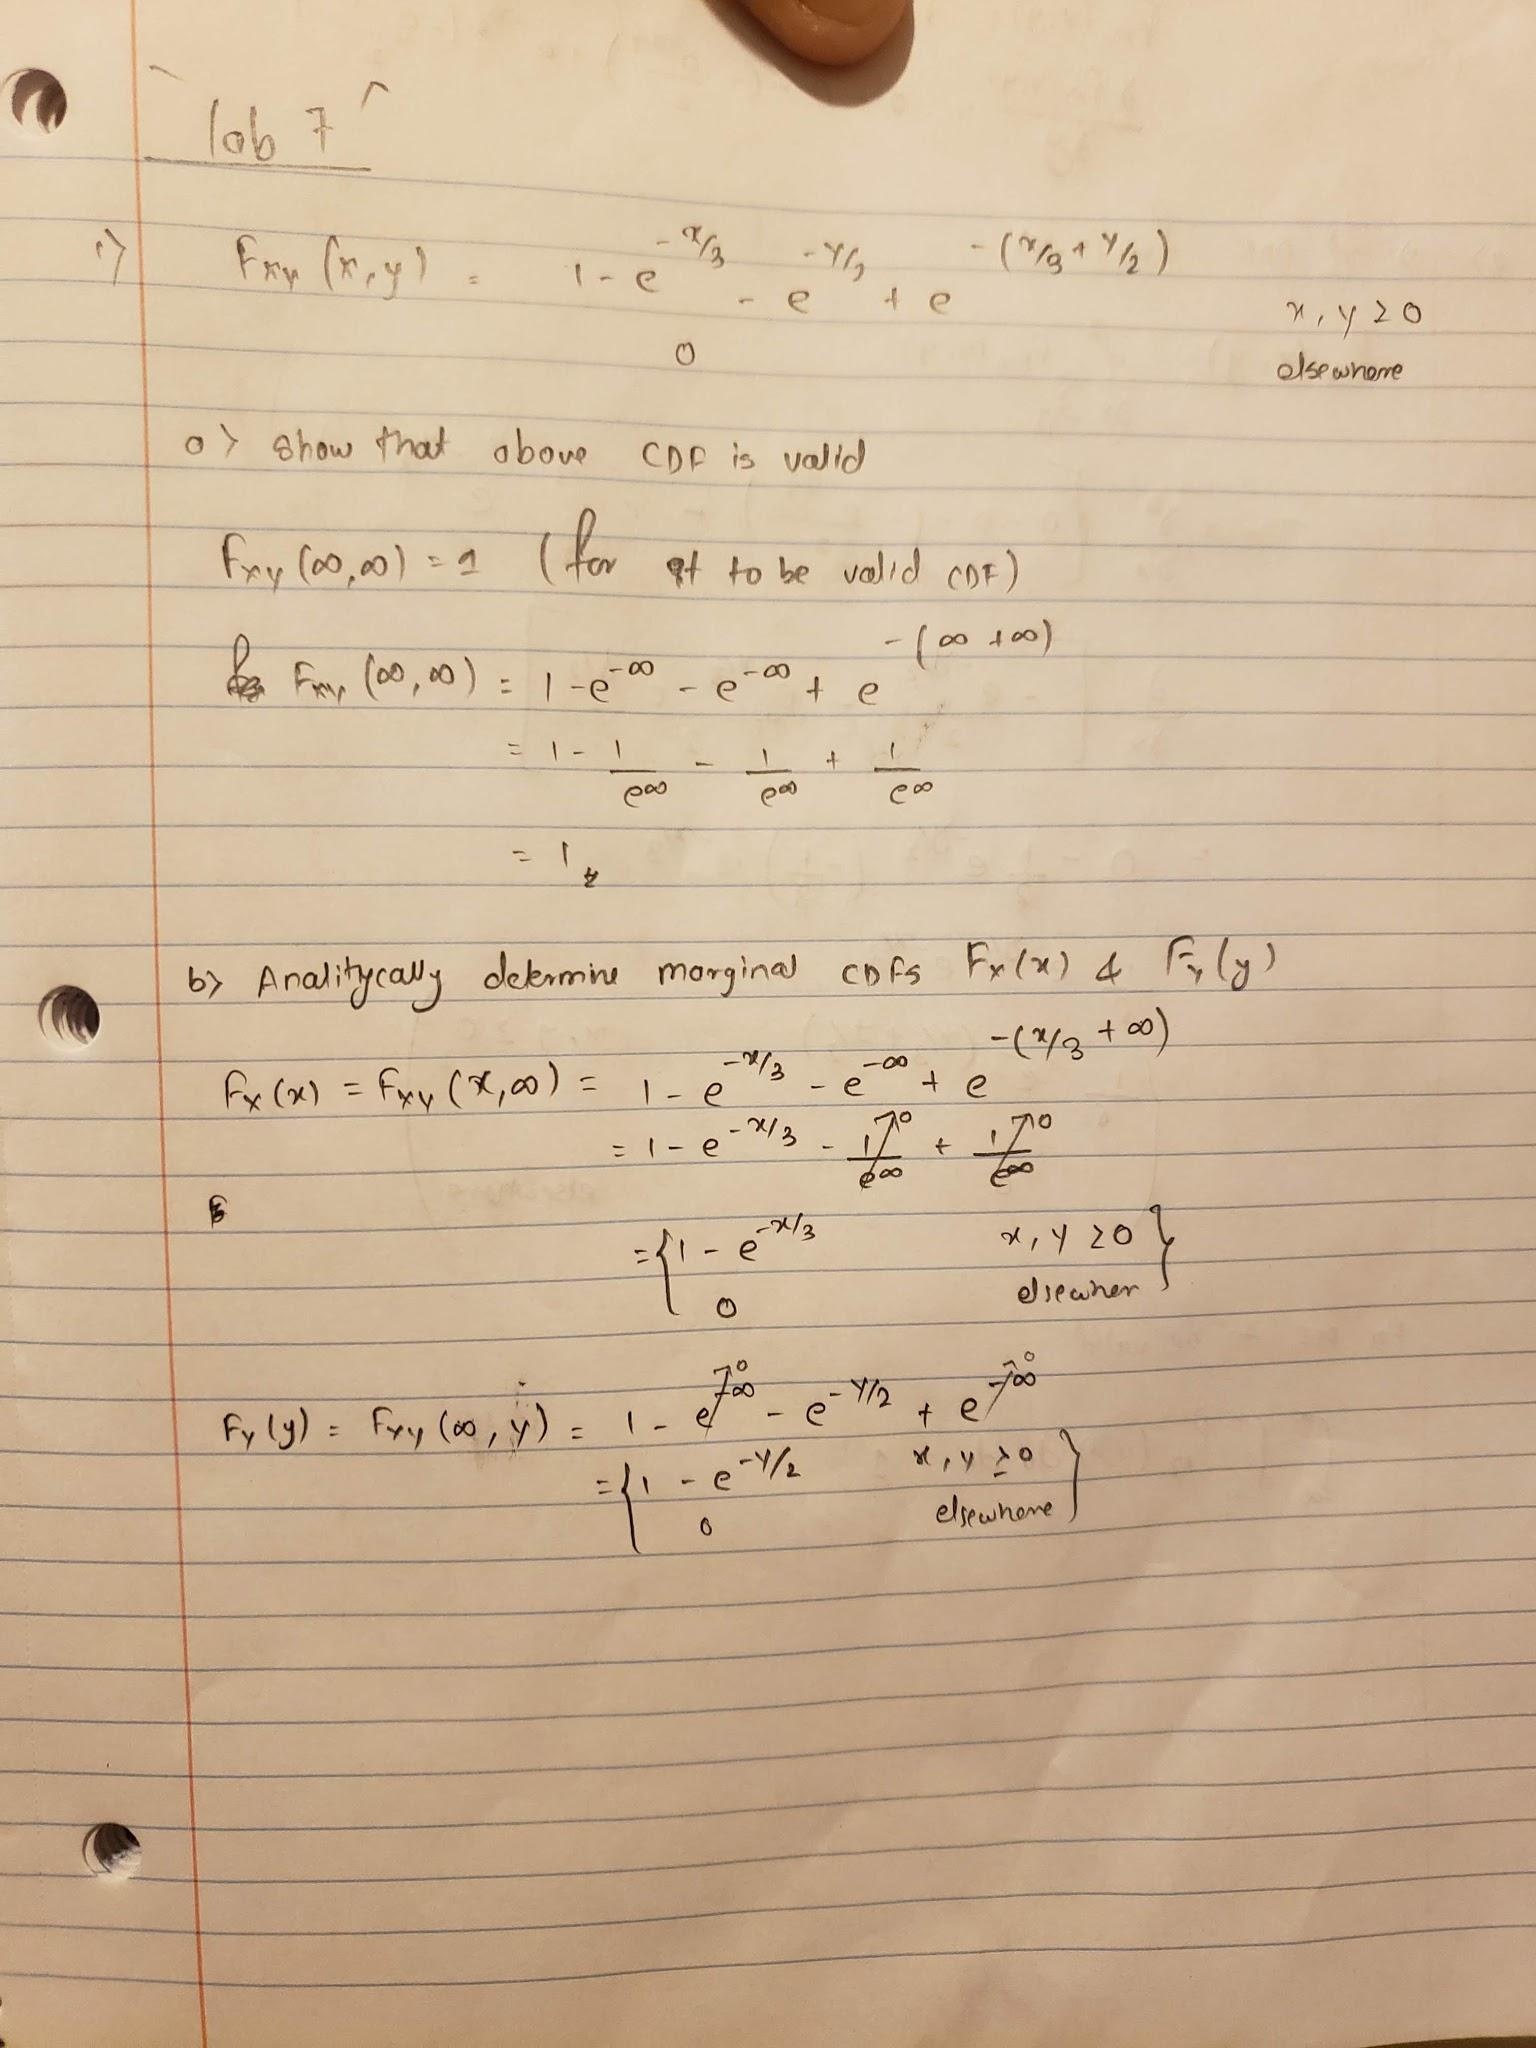 lab 7
1) Fxy (x,y) = 1 - e^-x/3 - e^-y/2 + e^-(x/3 + y/2) x, y ≥ 0
0 elsewhere
a) show that above CDF is valid
Fxy (∞,∞) = 1 (for it to be valid CDF)
Fxy (∞,∞) = 1 - e^-∞ - e^-∞ + e^-(∞ + ∞)
= 1 - 1/e^∞ - 1/e^∞ + 1/e^∞
= 1
b) Analitycally determine marginal CDFs Fx(x) & Fy(y)
Fx(x) = Fxy (x,∞) = 1 - e^-x/3 - e^-∞ + e^-(x/3 + ∞)
= 1 - e^-x/3 - 1/e^∞ →0 + 1/e^∞ →0
= { 1 - e^-x/3 x, y ≥ 0 }
0 elsewher
Fy(y) = Fxy (∞, y) = 1 - e^-∞ →0 - e^-y/2 + e^-∞ →0
= { 1 - e^-y/2 x, y ≥ 0 }
0 elsewhere